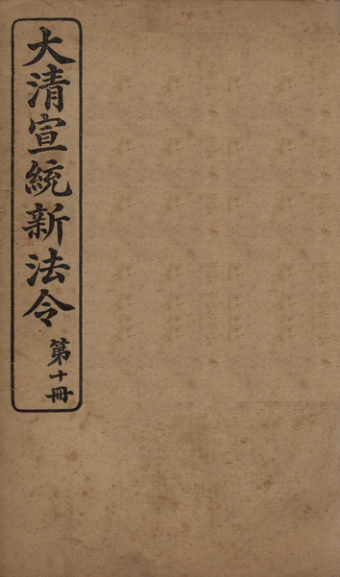 大清宣統新法令
第十冊